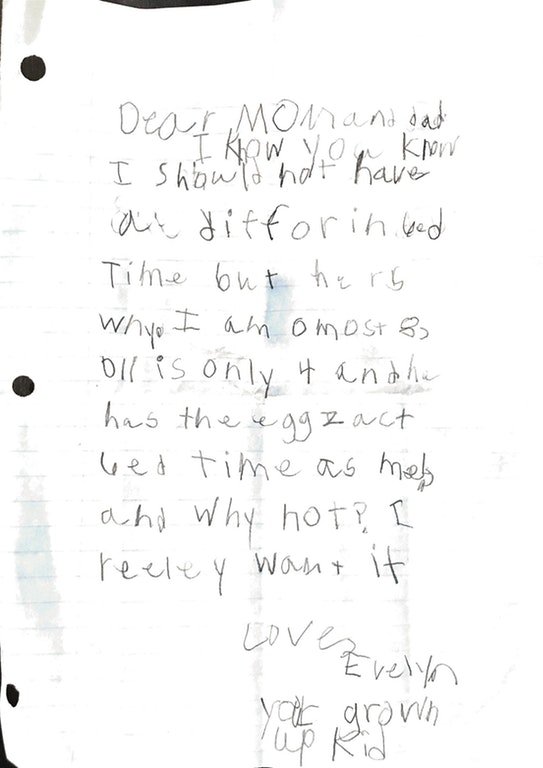 Dear MOM and dad
I know you know
I should not have
differin bed
Time but hers
why. I am omost 8,
Oll is only 4 and he
has the eggzact
bed time as me,
and why not? I
reeley want it
Love,
Evelyn
your grown
up kid